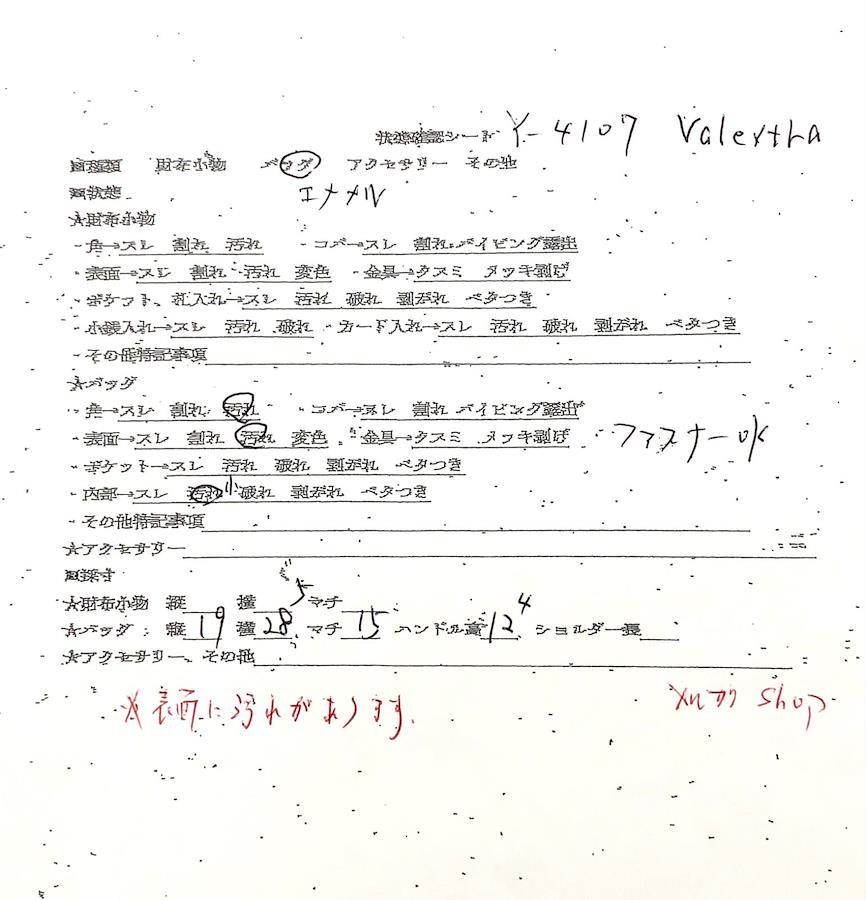 状態確認シート Y-4107 Valextra
■種類 財布小物 バッグ アクセサリー その他
■状態 エナメル
★財布小物
・角→スレ 割れ 汚れ ・コバ→スレ 割れ パイピング露出
・表面→スレ 割れ 汚れ 変色 ・金具→クスミ メッキ剥げ
・ポケット、札入れ→スレ 汚れ 破れ 剥がれ ベタつき
・小銭入れ→スレ 汚れ 破れ ・カード入れ→スレ 汚れ 破れ 剥がれ ベタつき
・その他特記事項
★バッグ
・角→スレ 割れ 汚れ ・コバ→スレ 割れ パイピング露出
・表面→スレ 割れ 汚れ 変色 ・金具→クスミ メッキ剥げ ファスナーOK
・ポケット→スレ 汚れ 破れ 剥がれ ベタつき
・内部→スレ 汚れ 小 破れ 剥がれ ベタつき
・その他特記事項
★アクセサリー
■採寸
★財布小物 縦 横 マチ
★バッグ：縦19 横28 マチ15 ハンドル高12 4 ショルダー長
★アクセサリー、その他
※表面に汚れがあります。 メルカリ shop